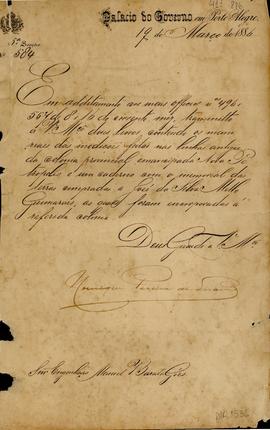 Palacio do Governo em Porto Alegre,
19 de Março de 1886
584
Em additamento aos meus officios nº 496
554 de 8 e 10 do corrente mez, transmitto
á Vmcê dous livros, contendo os memo
riaes das medicões feitas nas linhas antigas
da colonia provincial emancipada Nova Pe
tropolis e um caderno com o memorial das
terras compradas a José da Silva Mello
Guimarães, as quaes foram encorporadas á
referida colonia.
Deus Guarde a Vmcê
Henrique Pereira de
Snr Engenheiro Manoel